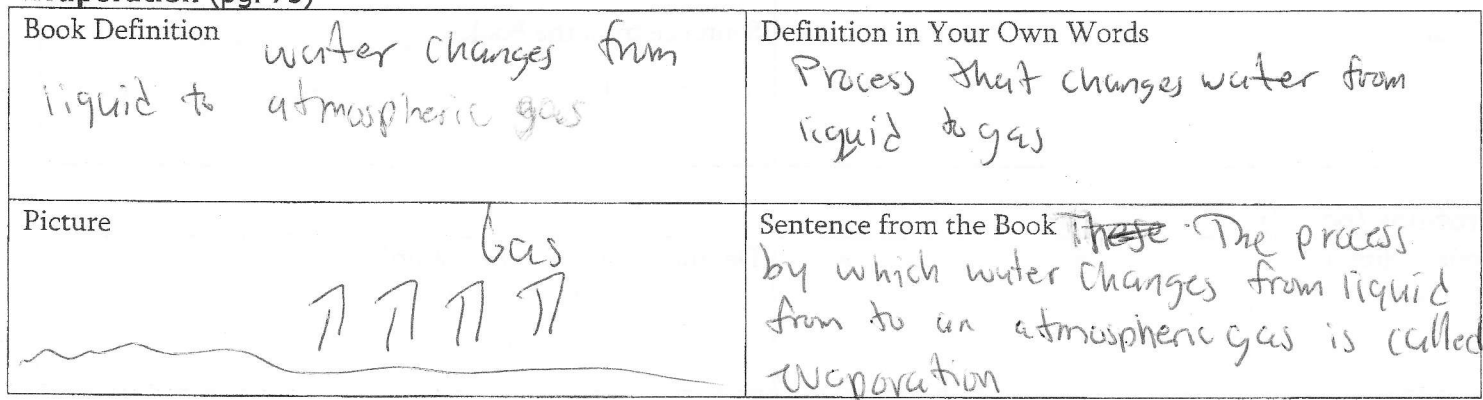 Book Definition water changes from
liquid to atmospheric gas
Definition in Your Own Words
Process that changes water from
liquid to gas
Picture
Gas
Sentence from the Book The process
by which water changes from liquid
from to an atmospheric gas is called
evaporation